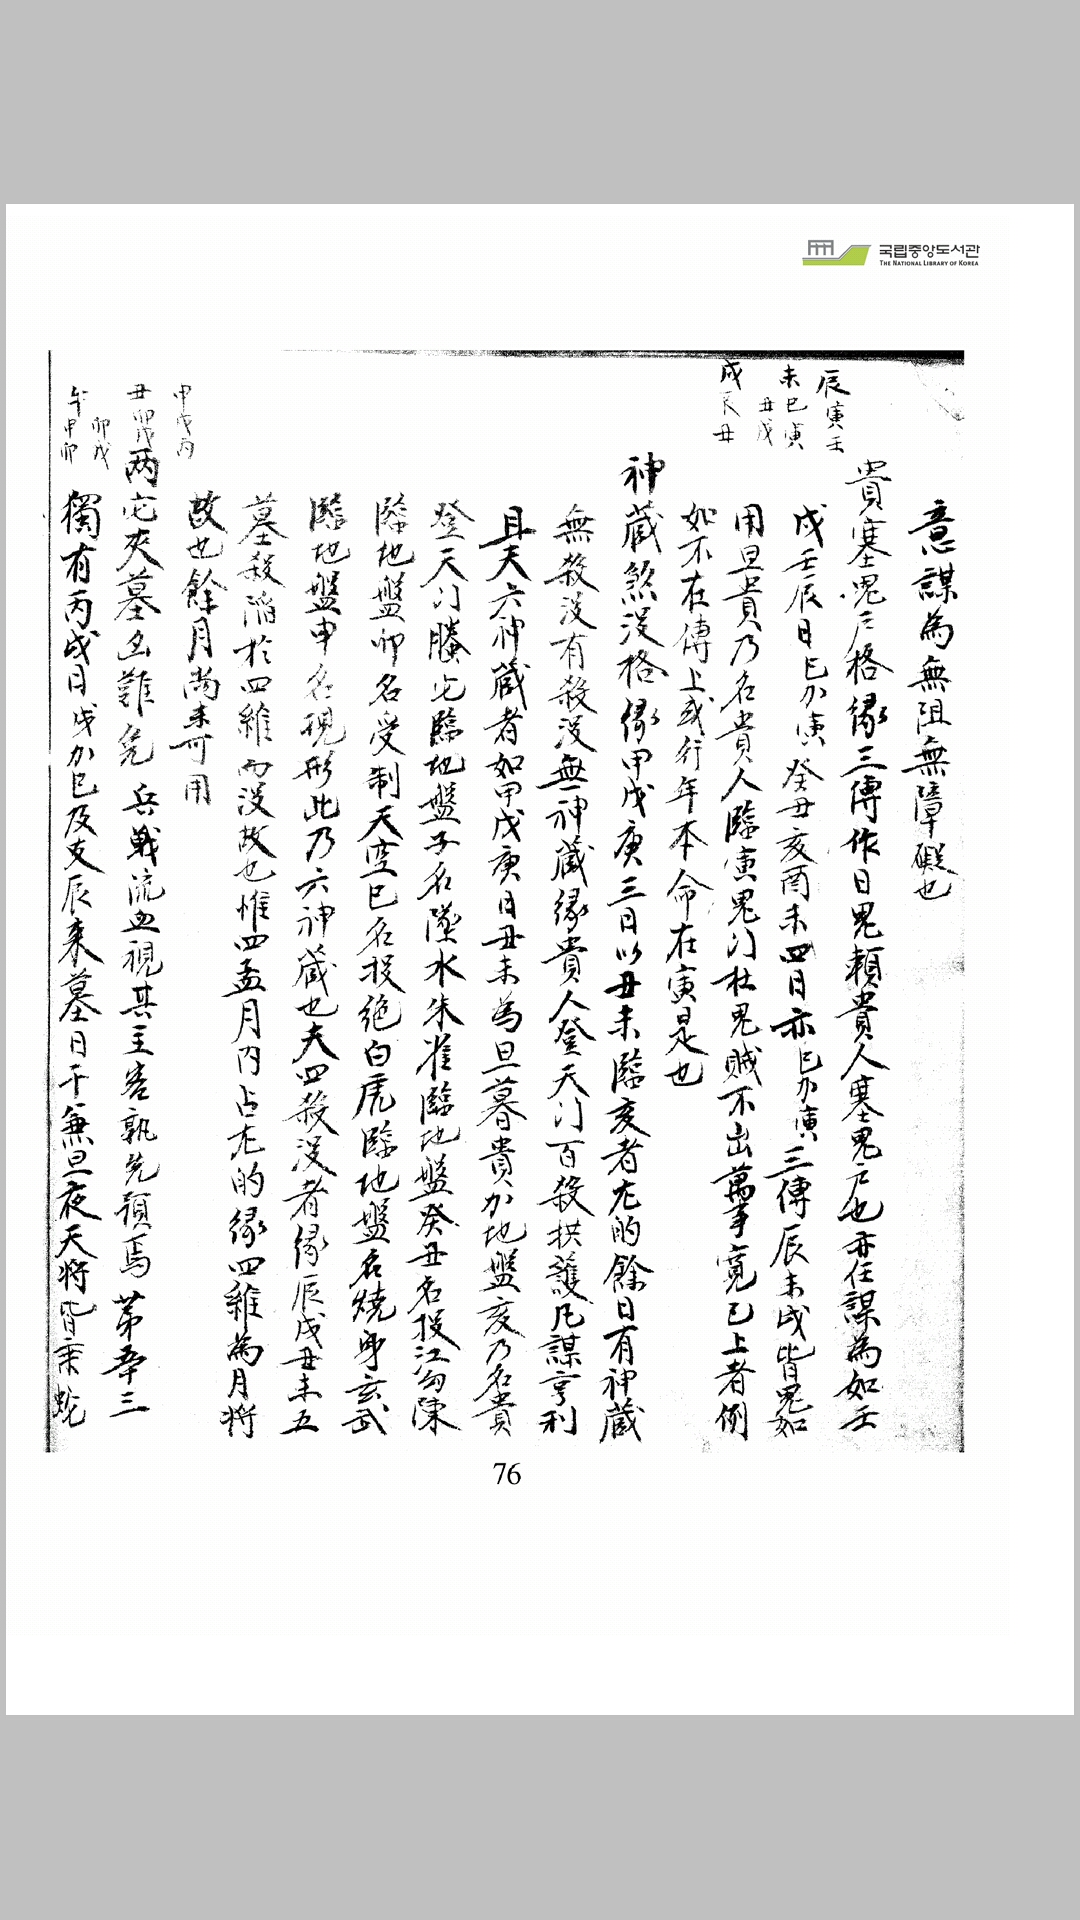 국립중앙도서관
THE NATIONAL LIBRARY OF KOREA
辰寅壬
未巳寅
丑戌
戌辰丑
意謀為無阻無障礙也
貴塞鬼户格缘三傳作日鬼賴貴人塞鬼户也亦任謀為如壬
戊壬辰日巳加寅癸丑亥酉未四日亦巳加寅三傳辰未戌皆鬼如
用旦貴乃名貴人臨寅鬼门杜鬼賊不出萬事寬已上者例
如不在傳上或行年本命在寅是也
神藏煞没格缘甲戊庚三日以丑未臨亥者尤的餘日有神藏
無殺没有殺没無神藏缘貴人登天门百殺拱護凡謀亨利
且夫六神藏者如甲戊庚日丑未為旦暮貴加地盤亥乃名貴
登天门螣虵臨地盤子名墜水朱雀臨地盤癸丑名投江勾陳
臨地盤卯名受制天空巳名投绝白虎臨地盤名燒身玄武
臨地盤申名現形此乃六神藏也夫四殺没者缘辰戌丑未五
墓殺陷於四維而没故也惟四孟月内占尤的缘四維為月将
故也餘月尚未可用
甲戊丙
丑卯戊
两虵夾墓凶難免 兵戰流血視其主害孰先預焉 苐夲三
卯戌
午甲卯
獨有丙戌日戌加巳及支辰来墓日干兼旦夜天将皆乘虵
76